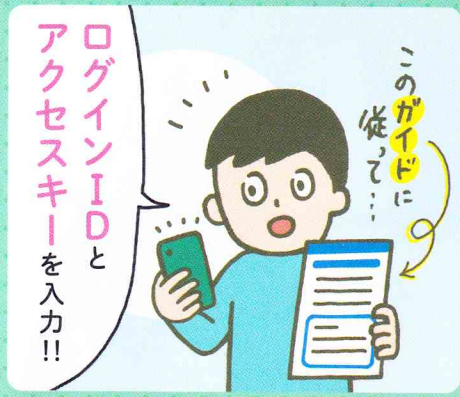 このガイドに
従って…
ログインIDと
アクセスキーを入力!!